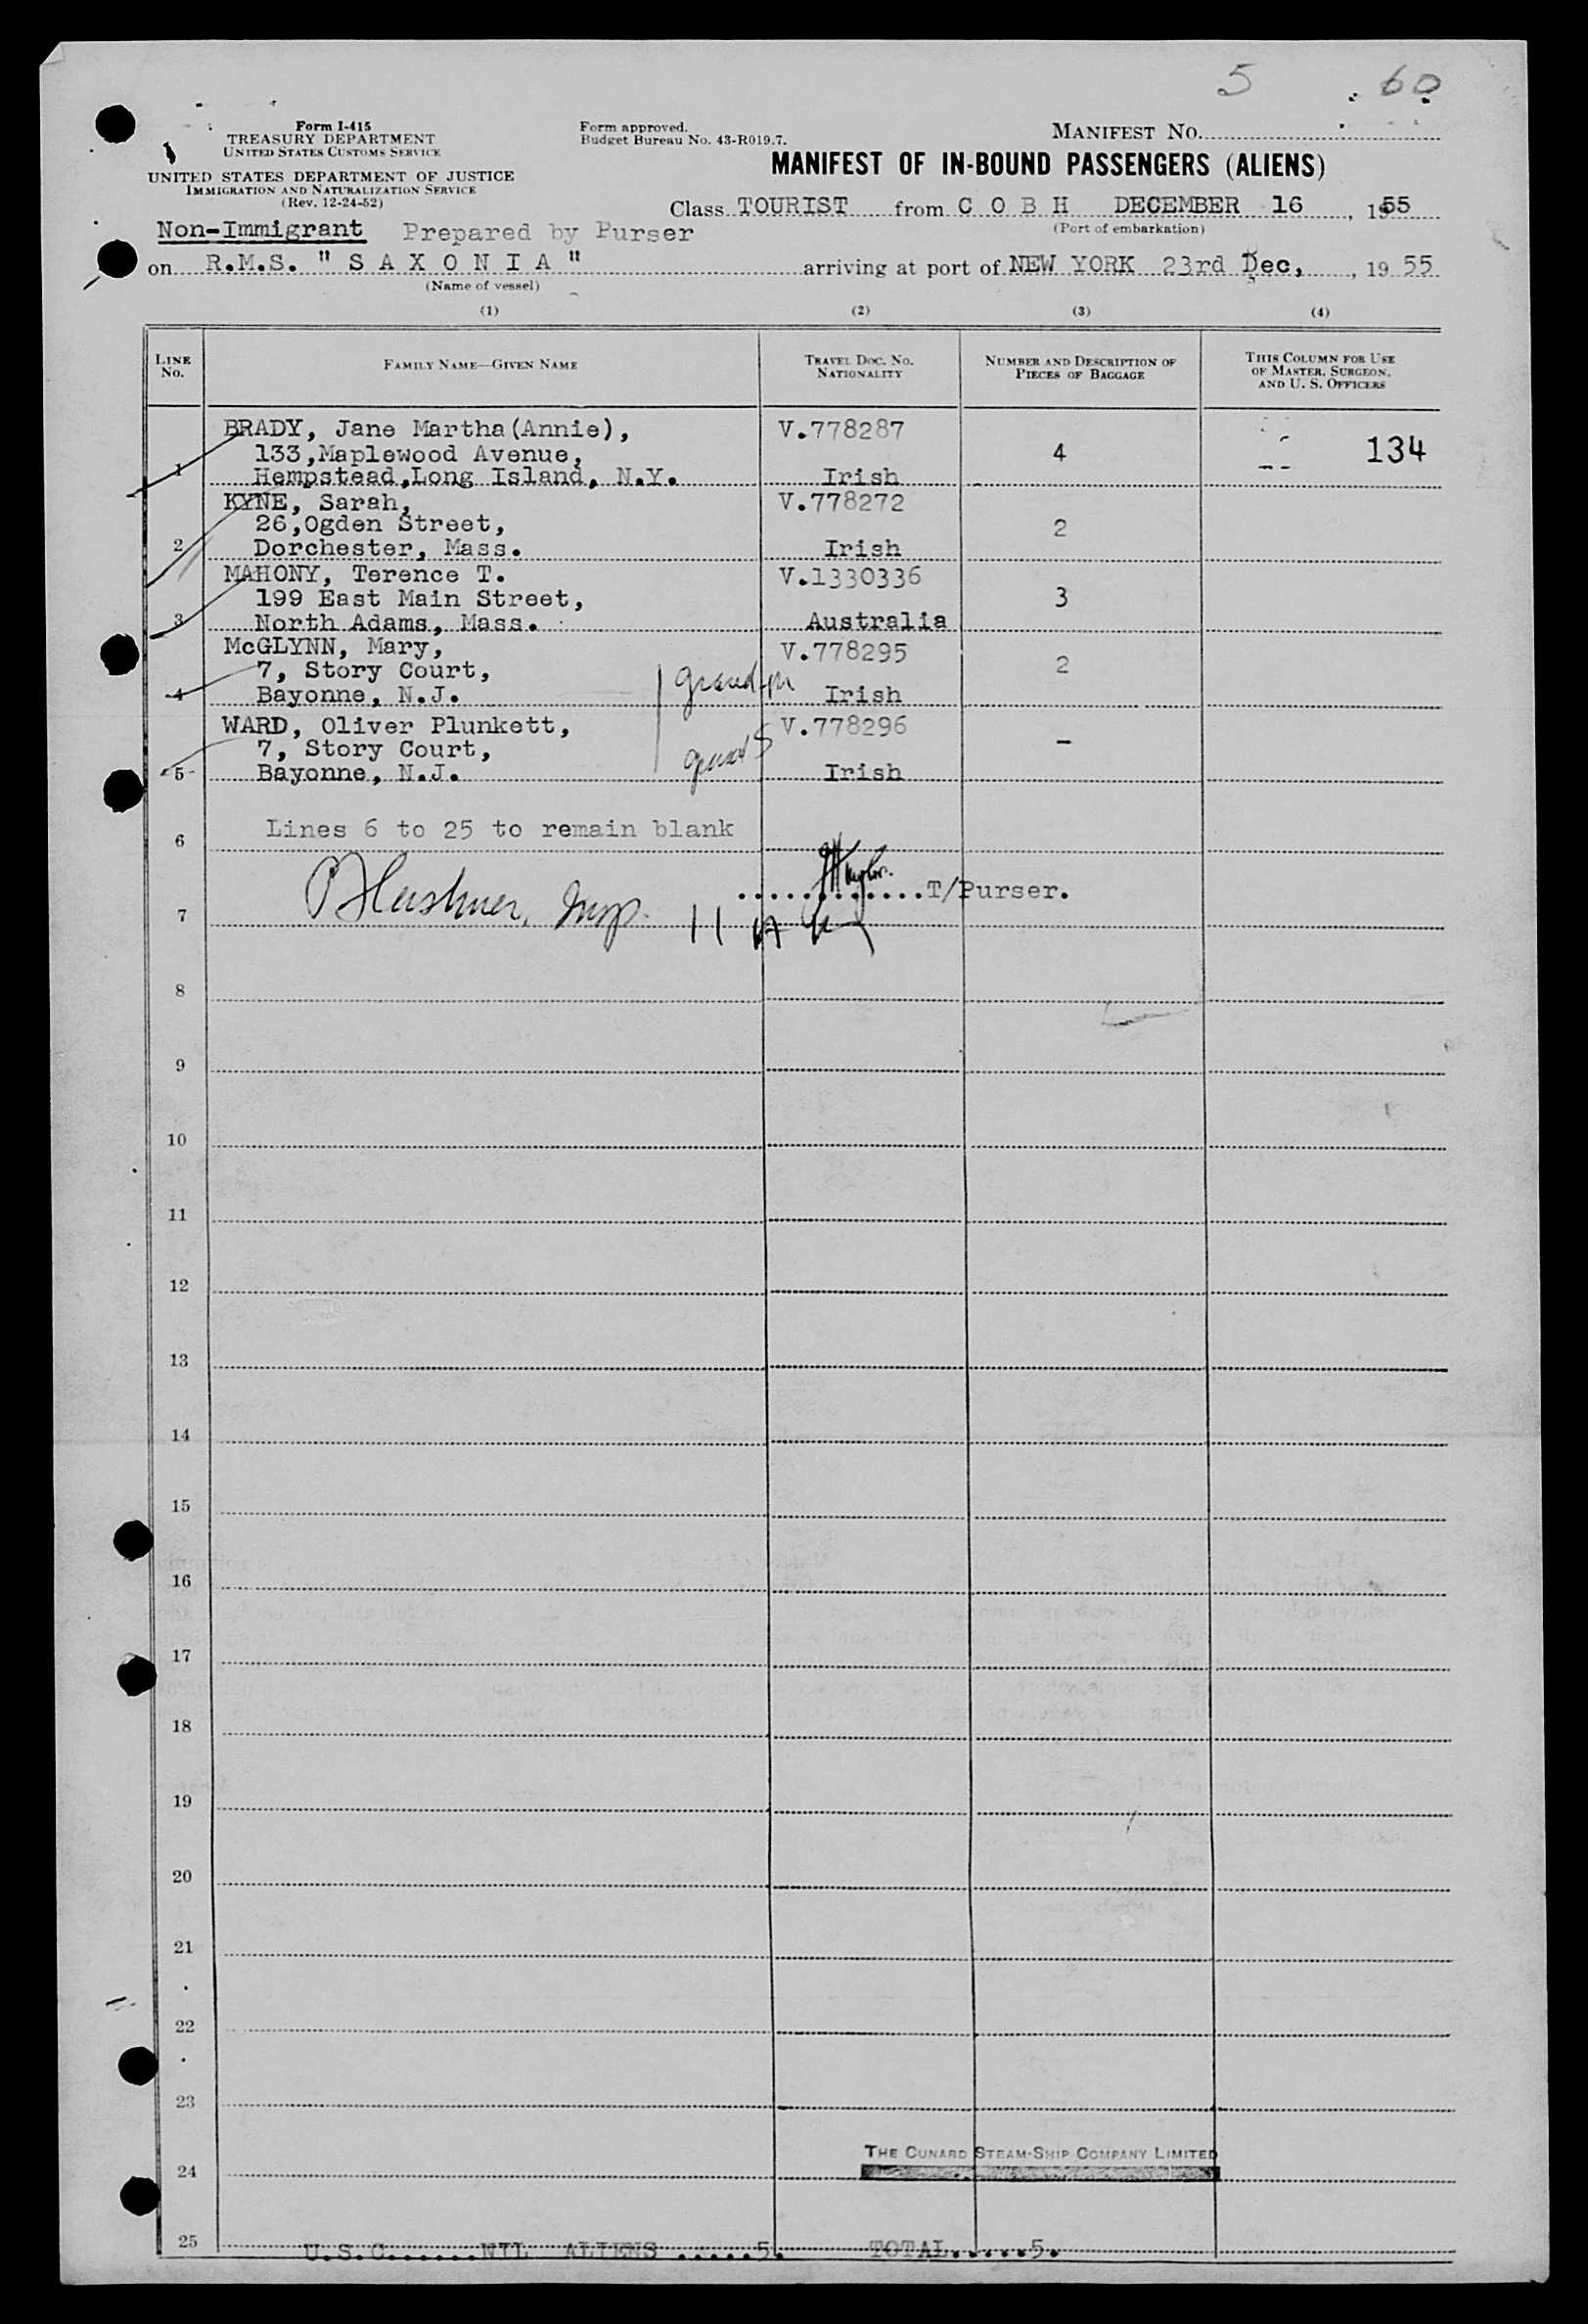 5 60
Form I-415
TREASURY DEPARTMENT
UNITED STATES CUSTOMS SERVICE
UNITED STATES DEPARTMENT OF JUSTICE
IMMIGRATION AND NATURALIZATION SERVICE
(Rev. 12-24-52)
Form approved.
Budget Bureau No. 43-R019.7.
MANIFEST NO.
MANIFEST OF IN-BOUND PASSENGERS (ALIENS)
Class TOURIST from C O B H DECEMBER 16, 1955
(Port of embarkation)
Non-Immigrant Prepared by Purser
on R.M.S. " S A X O N I A " arriving at port of NEW YORK 23rd Dec, , 19 55
(Name of vessel)
(1) (2) (3) (4)
LINE No.
FAMILY NAME—GIVEN NAME
TRAVEL DOC. NO. NATIONALITY
NUMBER AND DESCRIPTION OF PIECES OF BAGGAGE
THIS COLUMN FOR USE OF MASTER, SURGEON, AND U. S. OFFICERS
BRADY, Jane Martha(Annie), V.778287
133,Maplewood Avenue, 4 134
1 Hempstead,Long Island, N.Y. Irish
KYNE, Sarah, V.778272
26,Ogden Street, 2
2 Dorchester, Mass. Irish
MAHONY, Terence T. V.1330336
199 East Main Street, 3
3 North Adams, Mass. Australia
McGLYNN, Mary, V.778295
7, Story Court, grand-m 2
4 Bayonne, N.J. Irish
WARD, Oliver Plunkett, V.778296
7, Story Court, grand S -
5 Bayonne, N.J. Irish
6 Lines 6 to 25 to remain blank
.............T/Purser.
7 Insp.
8
9
10
11
12
13
14
15
16
17
18
19
20
21
22
23
THE CUNARD STEAM-SHIP COMPANY LIMITED
24
25 U.S.C......NIL ALIENS .....5. TOTAL.....5.